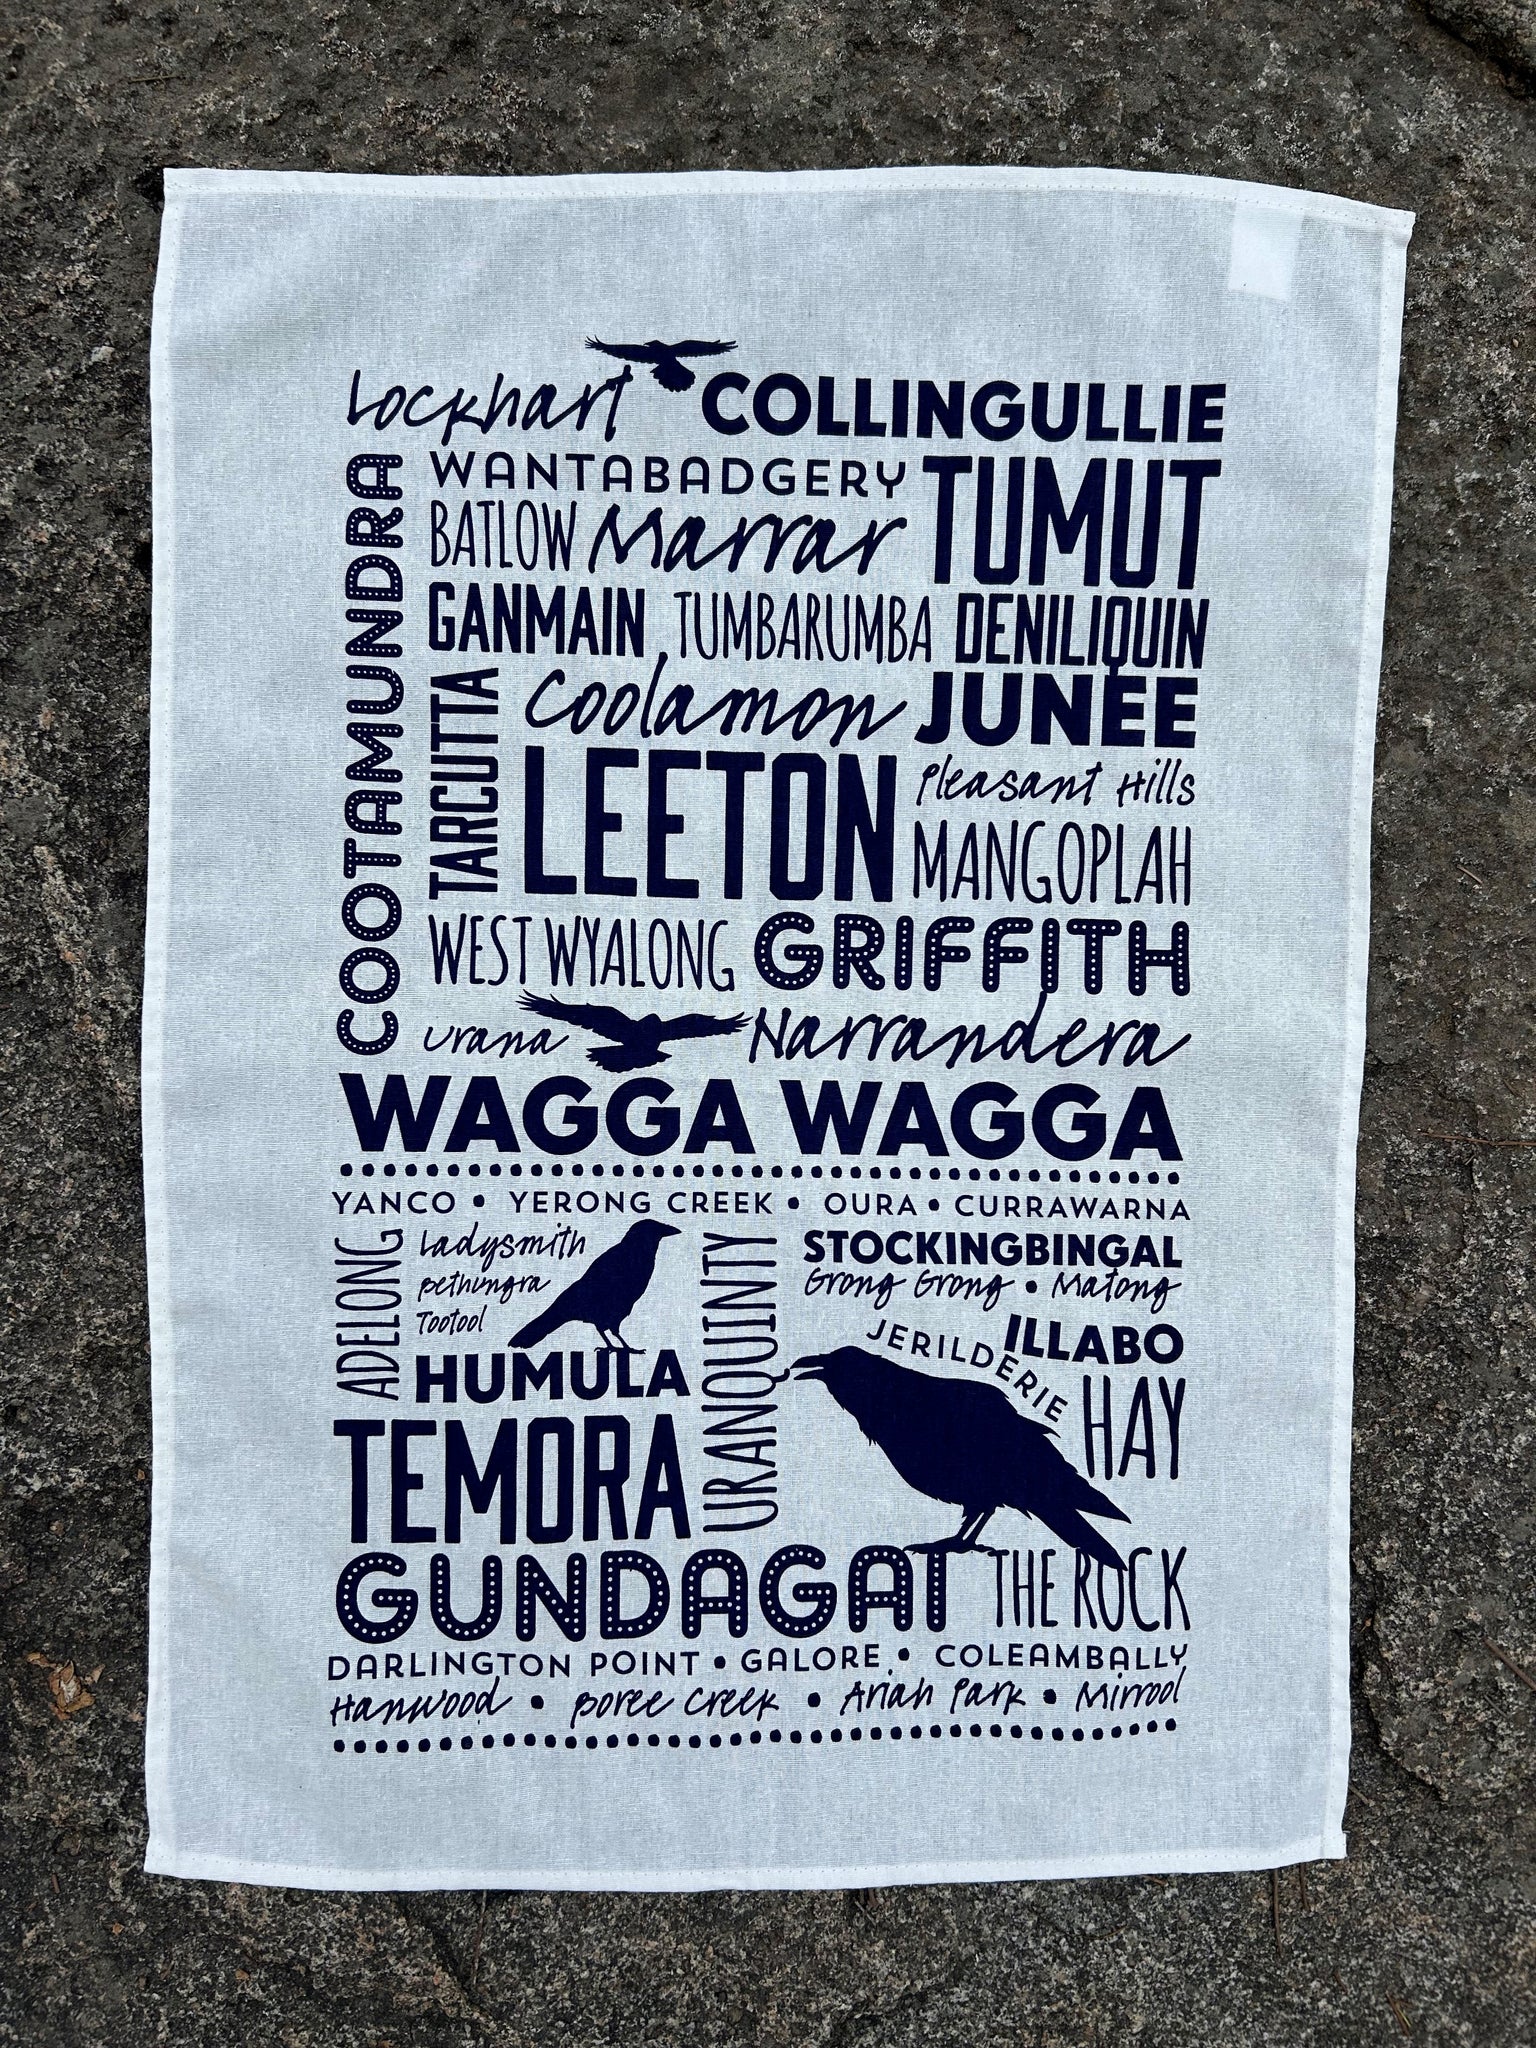 Lockhart COLLINGULLIE
COOTAMUNDRA
WANTABADGERY
TUMUT
BATLOW Marrar
GANMAIN TUMBARUMBA DENILIQUIN
TARCUTTA
Coolamon JUNEE
LEETON
Pleasant Hills
MANGOPLAH
WEST WYALONG GRIFFITH
Urana Narrandera
WAGGA WAGGA
YANCO • YERONG CREEK • OURA • CURRAWARNA
ADELONG
Ladysmith
Bethungra
Tootool
HUMULA
URANQUINTY
STOCKINGBINGAL
Grong Grong • Matong
ILLABO
JERILDERIE
HAY
TEMORA
GUNDAGAI THE ROCK
DARLINGTON POINT • GALORE • COLEAMBALLY
Hanwood • Boree Creek • Ariah Park • Mirrool